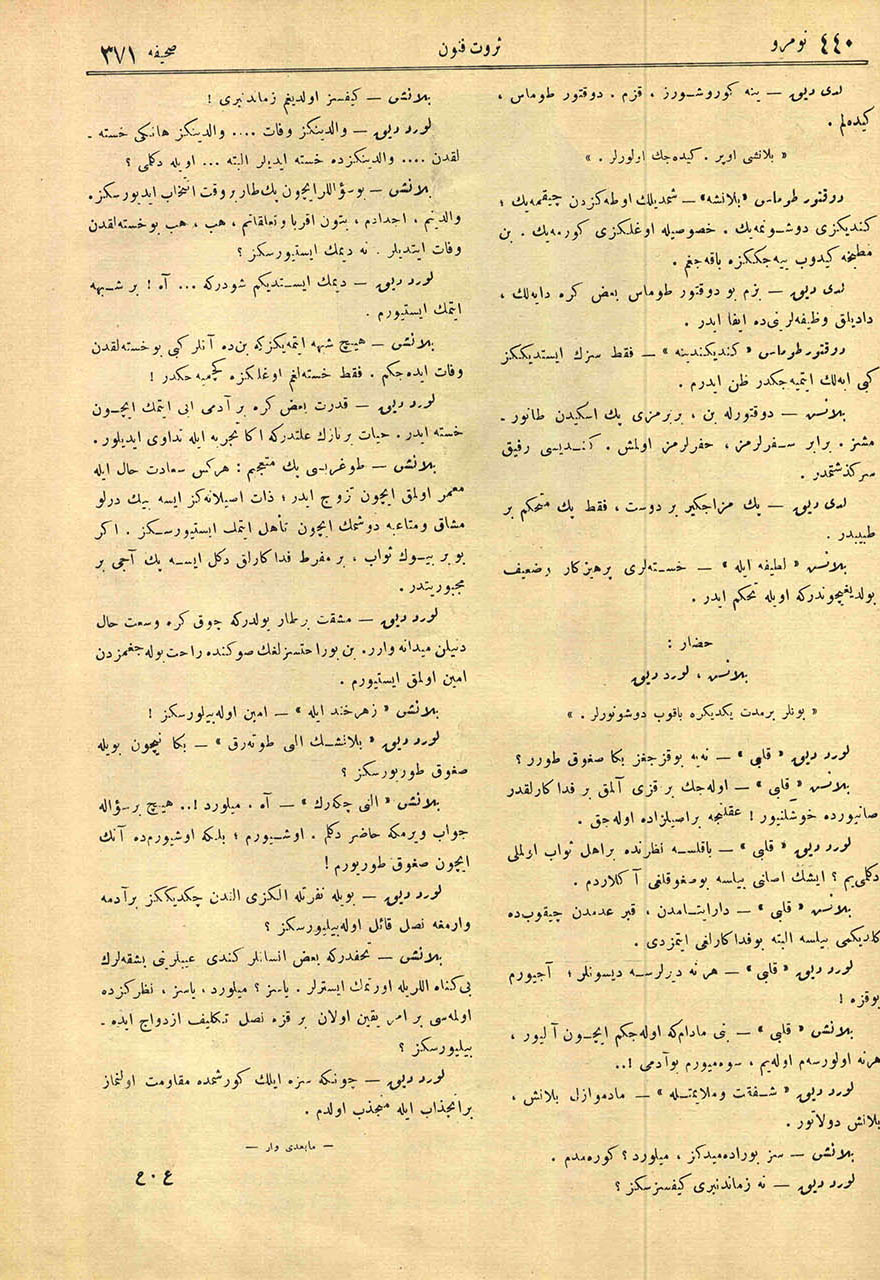 نومرو ٤٤٠
ثروت فنون
صحیفه ٣٧١
لدی دیق — ینه کوروشورز ، قزم . دوقتور طوماس ،
کیده‌لم .
« بلانشی اوپر . کیده‌جك اولورلر . »
دوقتور طوماس «بلانشه» — شمدیلك اوطه‌کزدن چیقمه‌یك ؛
کندیکزی دوشونمه‌یك . خصوصیله اوغلکزی کورمه‌یك . بن
مطبخه کیدوب ییه‌جککزه باقه‌جغم .
لدی دیق — بزم بو دوقتور طوماس بعض کره دایه‌لك ،
دادیلق وظیفه‌لرینی‌ده ایفا ایدر .
دوقتور طوماس « کندیکندینه » — فقط سزك ایستدیککز
کبی ابه‌لك ایتمیه‌جکدر ظن ایدرم .
بلانش — دوقتورله بن ، بربرمزی پك اسکیدن طانور ـ
مشز . برابر سفرلرمز ، حضرلرمز اولمش . کندیسی رفیق
سرکذشتمدر .
لدی دیق — پك مزاجکیر بر دوست ، فقط پك متحکم بر
طبیبدر .
بلانش « لطیفه ایله » — خسته‌لری پرهیزکار و ضعیف
بولدیغیچوندرکه اویله تحکم ایدر .
حضار :
بلانش ، لورد دیق
« بونلر برمدت یکدیکره باقوب دوشونورلر . »
لورد دیق « قلبی » — نه‌یه بوقزجغز بکا صغوق طورر ؟
بلانش « قلبی » — اوله‌جك بر قزی آلمق بر فداکارلقدر
صانیورده خوشلنیور ! عقلنجه براصیلزاده اوله‌جق .
لورد دیق « قلبی » — باقلسه نظرنده براهل ثواب اولملی
دکلمی‌یم ؟ ایشك اصلنی بیلسه بوصغوقلغی آکلاردم .
بلانش « قلبی » — دارایتامدن ، قبر عدمدن چیقوب‌ده
کلدیکمی بیلسه البته بوفداکارلغی ایتمزدی .
لورد دیق « قلبی » — هرنه دیرلرسه دیسونلر ؛ آجیورم
بوقزه !
بلانش « قلبی » — بنی مادام‌که اوله‌جکم ایچون آلیور ،
هرنه اولورسه‌م اوله‌یم ، سوه‌میورم بوآدمی !..
لورد دیق « شفقت وملایمتله » — مادموازل بلانش ،
بلانش دولاتور .
بلانش — سز بوراده‌میدکز ، میلورد ؟ کوره‌مدم .
لورد دیق — نه زماندنبری کیفسزسکز ؟
بلانش — کیفسز اولدیغم زماندنبری !
لورد دیق — والدینکز وفات .... والدینکز هانکی خسته ـ
لقدن .... والدینکزده خسته ایدیلر البته ... اویله دکلمی ؟
بلانش — بوسؤاللر ایچون پك طار بروقت انتخاب ایدیورسکز.
والدینم ، اجدادم ، بتون اقربا و تعلقاتم ، هب ، هب بوخسته‌لقدن
وفات ایتدیلر . نه دیمك ایستیورسکز ؟
لورد دیق — دیمك ایستدیکم شودرکه ... آه ! بر شبهه
ایتمك ایستیورم .
بلانش — هیچ شبهه ایتمه‌یکزکه بن‌ده آنلر کبی بوخسته‌لقدن
وفات ایده‌جکم . فقط خسته‌لغم اوغلکزه کچمیه‌جکدر !
لورد دیق — قدرت بعض کره بر آدمی ایی ایتمك ایچون
خسته ایدر . حیات برنازك علتدرکه اکا تجربه ایله تداوی ایدیلور.
بلانش — طوغریسی پك متعجبم : هرکس سعادت حال ایله
معمر اولمق ایچون تزوج ایدر ؛ ذات اصیلانه‌کز ایسه بیك درلو
مشاق ومتاعبه دوشمك ایچون تأهل ایتمك ایستیورسکز . اکر
بو بر بیوك ثواب ، بر مفرط فداکارلق دکل ایسه پك آجی بر
مجبوریتدر.
لورد دیق — مشقت برطار یولدرکه چوق کره وسعت حال
دنیلن میدانه وارر. بن بوراحتسزلغك صوکنده راحت بوله‌جغمزدن
امین اولمق ایستیورم .
بلانش « زهرخند ایله » — امین اوله‌بیلورسکز !
لورد دیق « بلانشك الی طوته‌رق » — بکا نیچون بویله
صغوق طوریورسکز ؟
بلانش « النی چکه‌رك » — آه . میلورد !.. هیچ برسؤاله
جواب ویرمکه حاضر دکلم . اوشیورم ؛ بلکه اوشیورم‌ده آنك
ایچون صغوق طوریورم !
لورد دیق — بویله نفرتله الکزی الندن چکدیککز برآدمه
وارمغه نصل قائل اوله‌بیلیورسکز ؟
بلانش — تحفدرکه بعض انسانلر کندی عیبلرینی بشقه‌لرك
بی‌کناه اللریله اورتمك ایسترلر . یاسز ؟ میلورد ، یاسز ، نظرکزده
اولمه‌سی بر امر یقین اولان بر قزه نصل تکلیف ازدواج ایده ـ
بیلیورسکز ؟
لورد دیق — چونکه سزه ایلك کورشمده مقاومت اولنماز
برانجذاب ایله منجذب اولدم .
— مابعدی وار —
ع . ح